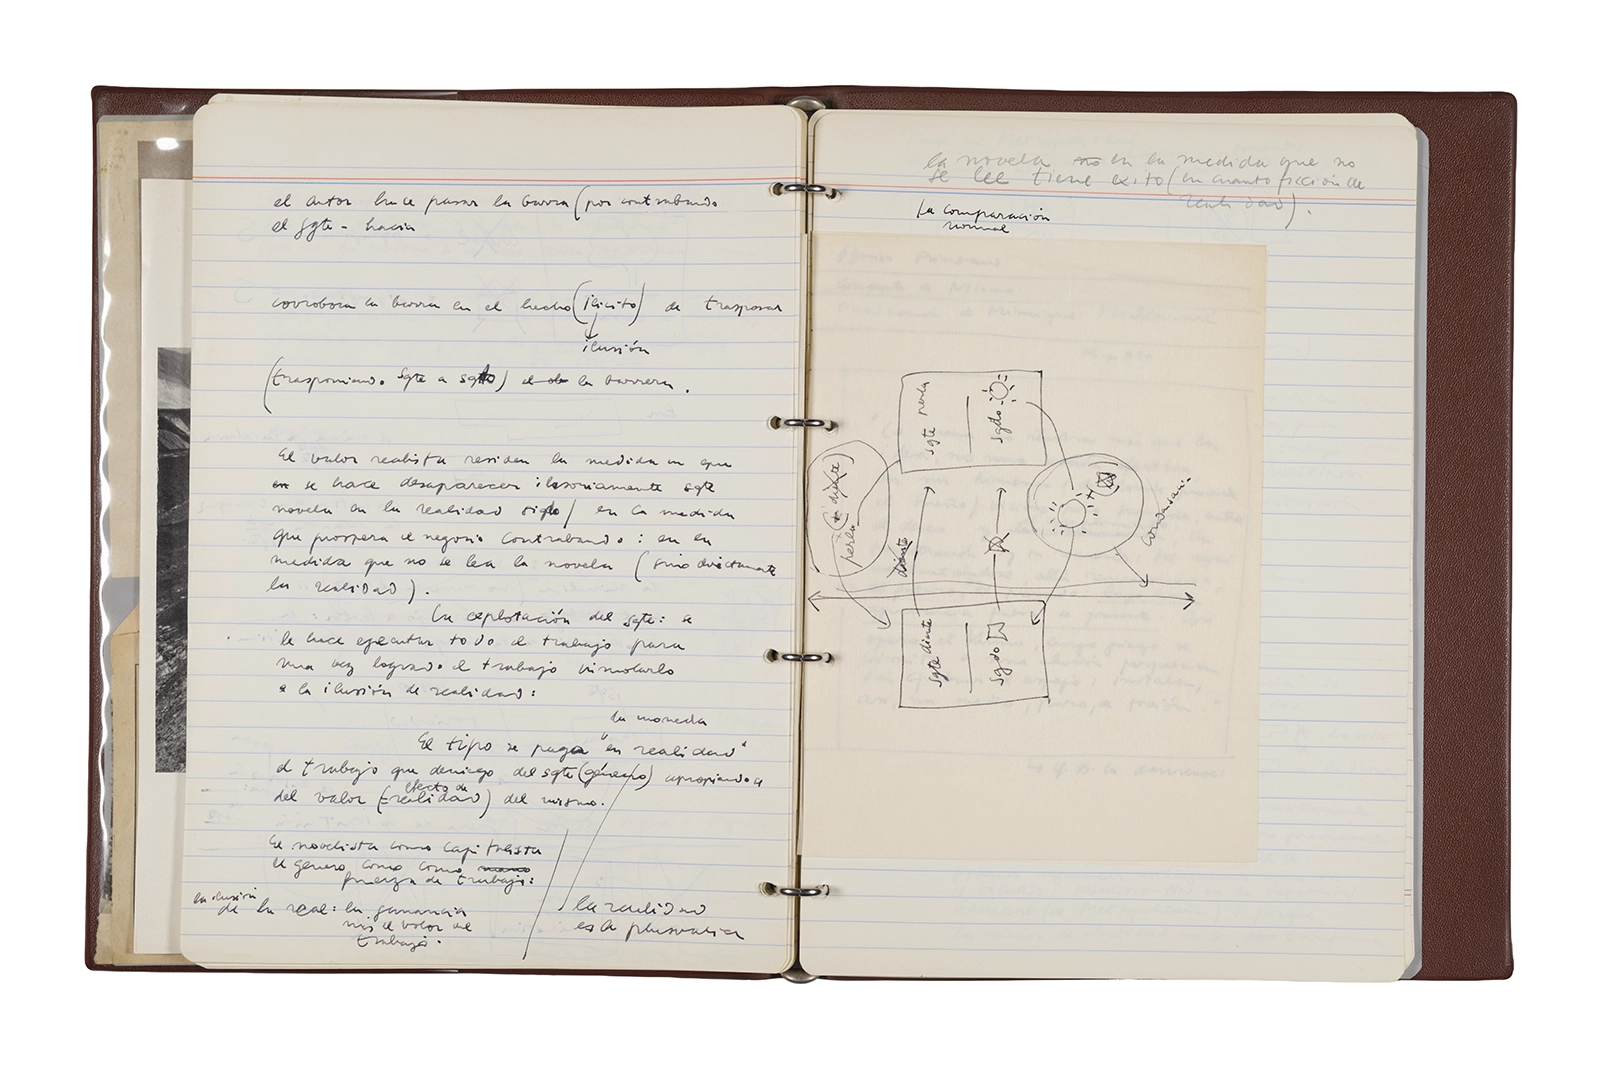 el autor hace pasar la barra (por contrabando
el sgte - hacia
corrobora la barra en el hecho (ilícito) de traspasar
ilusión
(trasponiendo sgte a sgdo) el la barrera.
El valor realista reside en la medida en que
en se hace desaparecer ilusoriamente sgte
novela en la realidad sigdo / en la medida
que prospera el negocio contrabando : en la
medida que no se lea la novela (sino directamente
la realidad).
La explotación del sgte: se
le hace ejecutar todo el trabajo para
una vez logrado el trabajo inmolarlo
a la ilusión de realidad:
la moneda
El tipo se paga "en realidad"
el trabajo que deniega del sgte (género) apropiandose
efecto de
del valor (realidad) del mismo.
El novelista como capitalista
el género como como
fuerza de trabajo:
la ilusión
de lo real: la ganancia
el valor del
trabajo.
la realidad
es la plusvalía
la novela no en la medida que no
se lee tiene exito (en cuanto ficción de
realidad).
la comparación
normal
sgte perla
sgdo
perla (+ diente)
+
condensari.
diente
sgte diente
sgdo